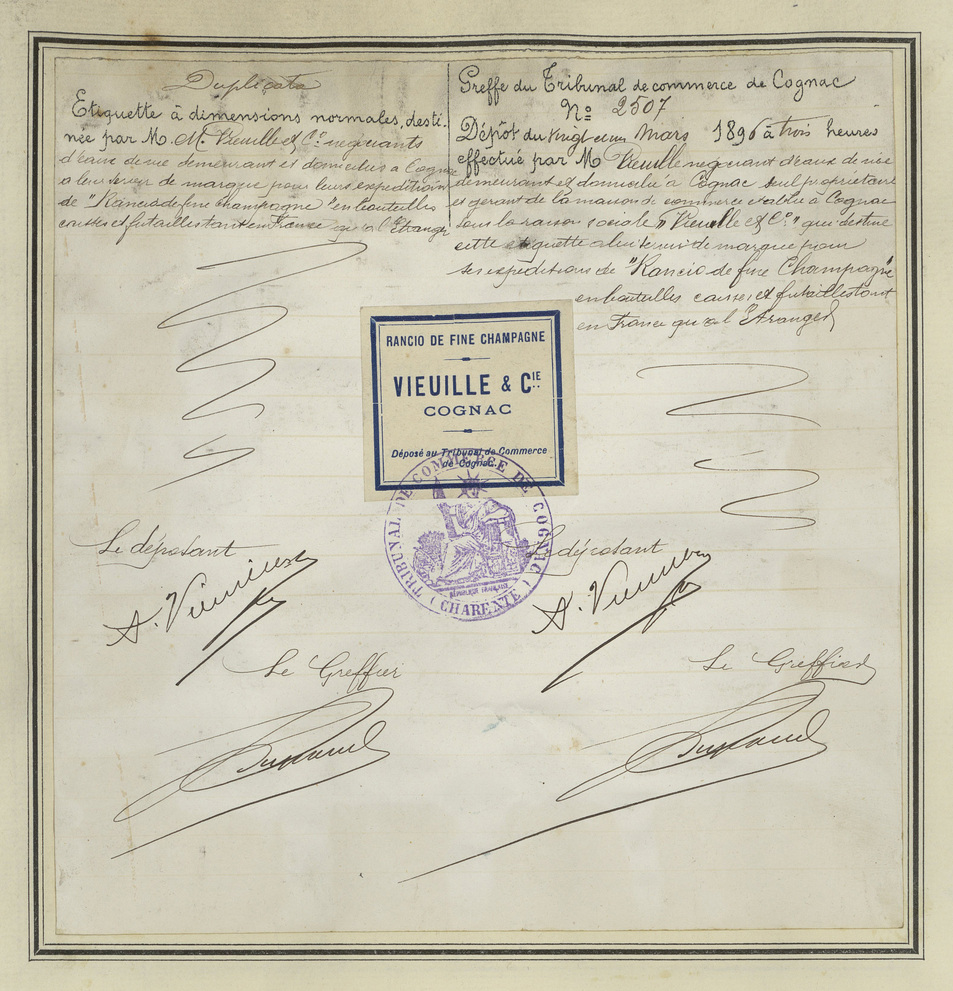 Duplicata
Etiquette à dimensions normales, desti-
née par M. M. Vieuille et Cº. negociants
d'eaux de vie demeurant et domiciliés à Cognac
a leur servir de marque pour leurs expeditions
de "Rancio de fine champagne" en bouteilles
caisses et futailles tant en France qu'à l'Etranger
Le déposant
Le Greffier
Greffe du Tribunal de commerce de Cognac
Nº 2507
Dépôt du vingt et un Mars 1896 à trois heures
effectué par M Vieuille negociant d'eaux de vie
demeurant et domicilié à Cognac seul propriétaire
et gerant de la maison de commerce établie à Cognac
sous la raison sociale "Vieuille et Cº." qui destine
cette etiquette a lui servir de marque pour
ses expeditions de "Rancio de fine Champagne"
en bouteilles caisses et futailles tant
en France qu'a l'Etranger
Le déposant
Le Greffier
RANCIO DE FINE CHAMPAGNE
VIEUILLE & CIE
COGNAC
Déposé au Tribunal de Commerce
de Cognac.
TRIBUNAL DE COMMERCE DE COGNAC
REPUBLIQUE FRANÇAISE
( CHARENTE )